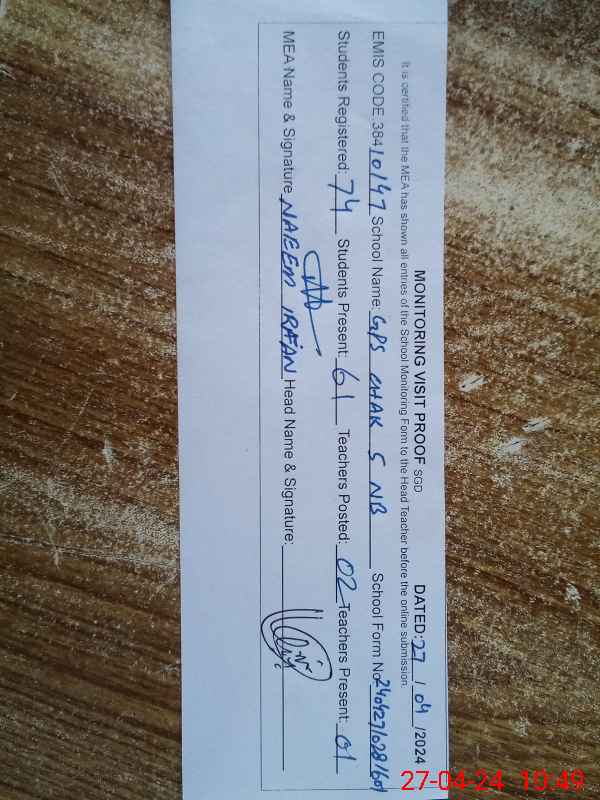 MONITORING VISIT PROOF SGD DATED: 27 / 04 /2024
It is certified that the MEA has shown all entries of the School Monitoring Form to the Head Teacher before the online submission.
EMIS CODE 38410147 School Name: GPS CHAK 5 NB School Form No 240427/028/601
Students Registered: 74 Students Present: 61 Teachers Posted: 02 Teachers Present: 01
MEA Name & Signature NAEEM IRFAN Head Name & Signature:
27-04-24 10:49